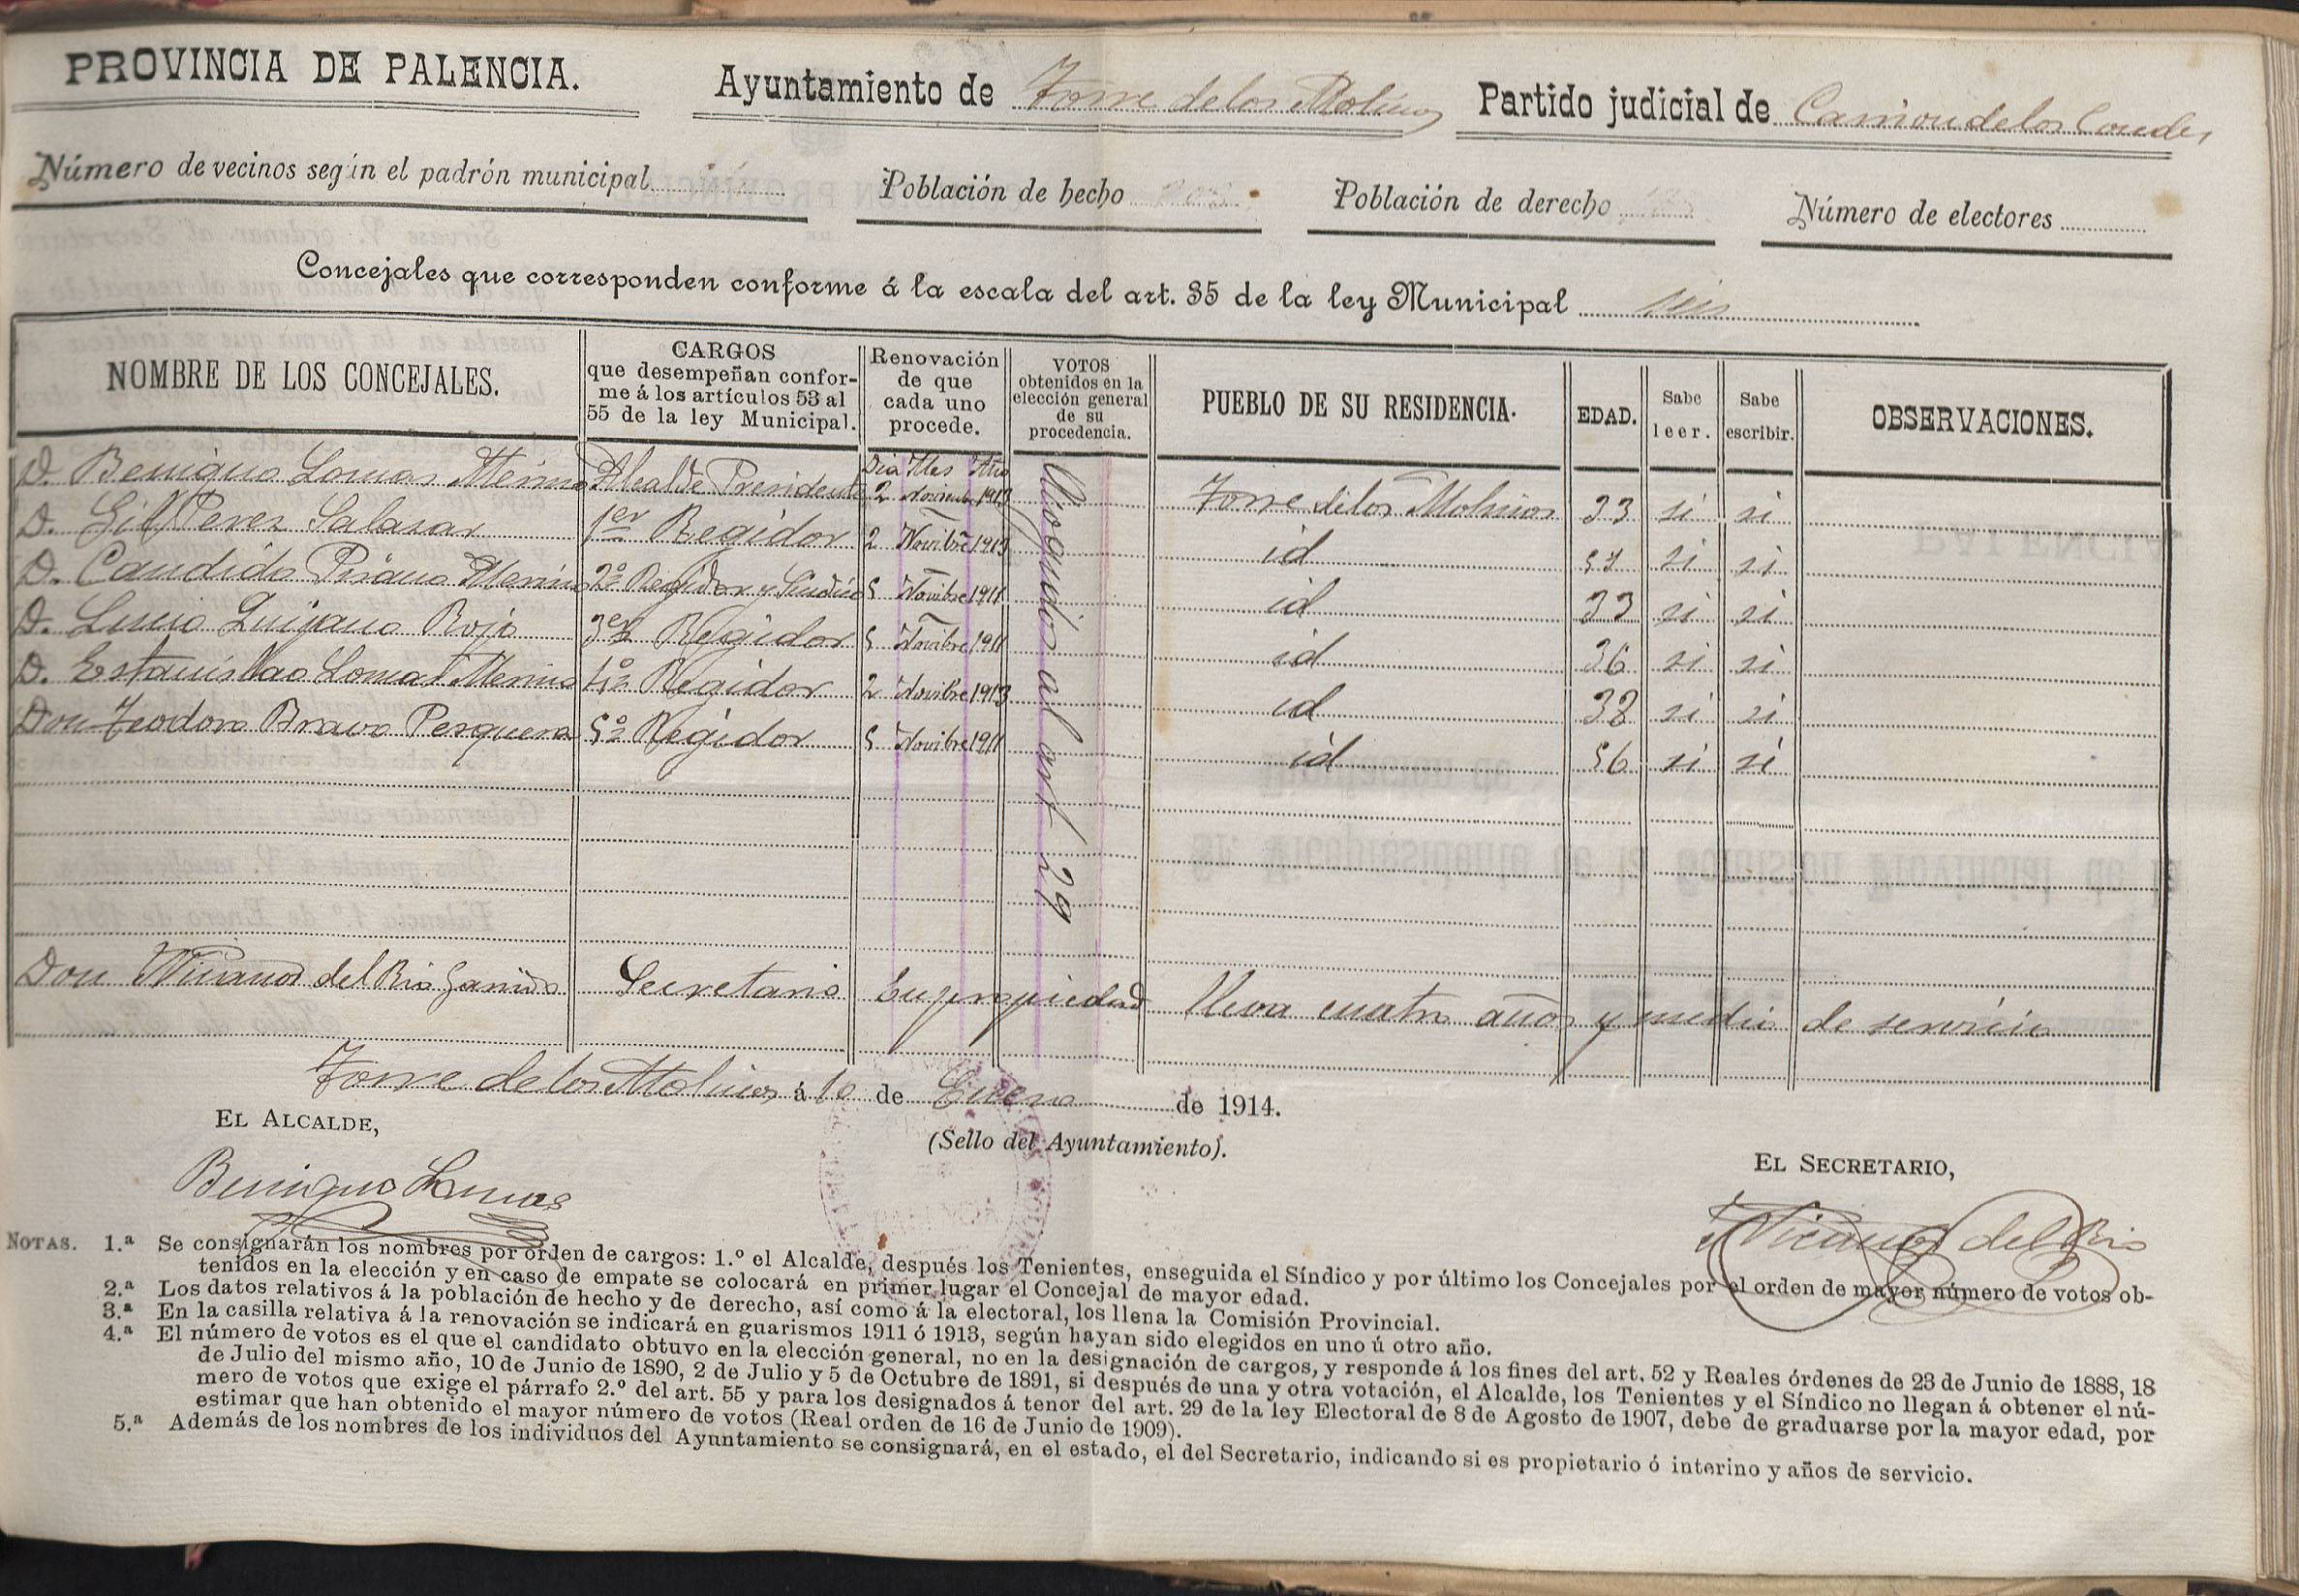 PROVINCIA DE PALENCIA. Ayuntamiento de Torre de los Molinos Partido judicial de Carrion de los Condes
Número de vecinos según el padrón municipal Población de hecho Población de derecho Número de electores
Concejales que corresponden conforme á la escala del art. 35 de la ley Municipal seis
NOMBRE DE LOS CONCEJALES. CARGOS que desempeñan conforme á los artículos 53 al 55 de la ley Municipal. Renovación de que cada uno procede. VOTOS obtenidos en la elección general de su procedencia. PUEBLO DE SU RESIDENCIA. EDAD. Sabe leer. Sabe escribir. OBSERVACIONES.
Dia Mes Año
D. Benigno Lomas Merino Alcalde Presidente 2 Noviembre 1913 Torre de los Molinos 33 si si
D. Gil Perez Salasar 1er Regidor 2 Novibre 1913 id 57 si si
D. Candido Pisano Merino 2º Regidor y Sindico 5 Novibre 1911 id 33 si si
D. Lucio Quijano Rojo 3er Regidor 5 Novibre 1911 id 36 si si
D. Estanislao Lomas Merino 4º Regidor 2 Novibre 1913 id 38 si si
Don Teodoro Bravo Pesquera 5º Regidor 5 Novibre 1911 id 56 si si
Acogidos al art 29
Don Nicanor del Rio Garrido Secretario En propiedad lleva cuatro años y medio de servicio
Torre de los Molinos á 10 de Enero de 1914.
EL ALCALDE,
(Sello del Ayuntamiento).
EL SECRETARIO,
Benigno Lomas
Nicanor del Rio
NOTAS. 1.ª Se consignarán los nombres por orden de cargos: 1.º el Alcalde, después los Tenientes, enseguida el Síndico y por último los Concejales por el orden de mayor número de votos ob-
tenidos en la elección y en caso de empate se colocará en primer lugar el Concejal de mayor edad.
2.ª Los datos relativos á la población de hecho y de derecho, así como á la electoral, los llena la Comisión Provincial.
3.ª En la casilla relativa á la renovación se indicará en guarismos 1911 ó 1913, según hayan sido elegidos en uno ú otro año.
4.ª El número de votos es el que el candidato obtuvo en la elección general, no en la designación de cargos, y responde á los fines del art. 52 y Reales órdenes de 23 de Junio de 1888, 18
de Julio del mismo año, 10 de Junio de 1890, 2 de Julio y 5 de Octubre de 1891, si después de una y otra votación, el Alcalde, los Tenientes y el Síndico no llegan á obtener el nú-
mero de votos que exige el párrafo 2.º del art. 55 y para los designados á tenor del art. 29 de la ley Electoral de 8 de Agosto de 1907, debe de graduarse por la mayor edad, por
estimar que han obtenido el mayor número de votos (Real orden de 16 de Junio de 1909).
5.ª Además de los nombres de los individuos del Ayuntamiento se consignará, en el estado, el del Secretario, indicando si es propietario ó interino y años de servicio.